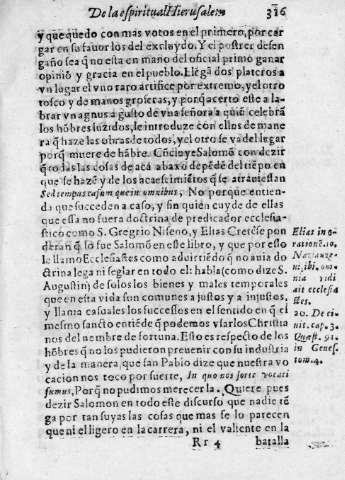 De la espiritual Hierusalem 316
y que quedo con mas votos en el primero, por car
gar en su fauor los del excluydo. Y el postrer desen
gaño sea q̃ no esta en mano del oficial primo ganar
opinió y gracia en el pueblo. Llegã dos plateros a
vn lugar el vno raro artifice por extremo, y el otro
tosco y de manos groseras, y porq̃ acerto este a la-
brar vn agnus a gusto de vna señora a quié celebrã
los hõbres luzidos, le introduze con ellos de mane
ra q̃ haze las obras de todos, y el otro se va del lugar
porq̃ muere de hãbre. Cõcluye Salomõ con dezir
q̃ to las las cosas de acá abaxo depẽdé del tiẽpo en
que se hazẽ y de los acaescimiẽtos q̃ se atrauiessan
Sed tempus casum que in omnibus, No porque entien-
da que succeden a caso, y sin quien cuyde de ellas
que essa no fuera doctrina de predicador ecclesia-
stico como S. Gregrio Niseno, y Elias Cretẽse pon
deran q̃ lo fue Salomõ en este libro, y que por esso
le llamo Ecclesiastes como aduirtiédo q̃ no auia do
ctrina lega ni seglar en todo el: habla (como dize S.
Augustin) de solos los bienes y males temporales
que en esta vida sun comunes a justos y a injustos,
y llama casuales los successos en el sentido en q̃ el
mesmo sancto entiẽde q̃ podemos vsar los Christia
nos del nombre de fortuna. Esto es respecto de los
hõbres q̃ no los pudieron preuenir con su industria
y de la manera que san Pablo dize que nuestra vo
cacion nos toco por suerte, In quo nos sorte vocati
sumus, Porq̃ no pudimos merecer la. Quiere pues
dezir Salomon en todo este discurso que nadie tẽ-
ga por tan suyas las cosas que mas se lo parecen
que ni el ligero en la carrera, ni el valiente en la
Rr 4 batalla
Elias in o-
rationẽ. 10.
Nazianze-
ni, ibi, om-
nia vidi
ait ecclesia
stes.
20. De ci-
uit. cap. 3.
Quæst. 91.
in Genes.
tom. 4.